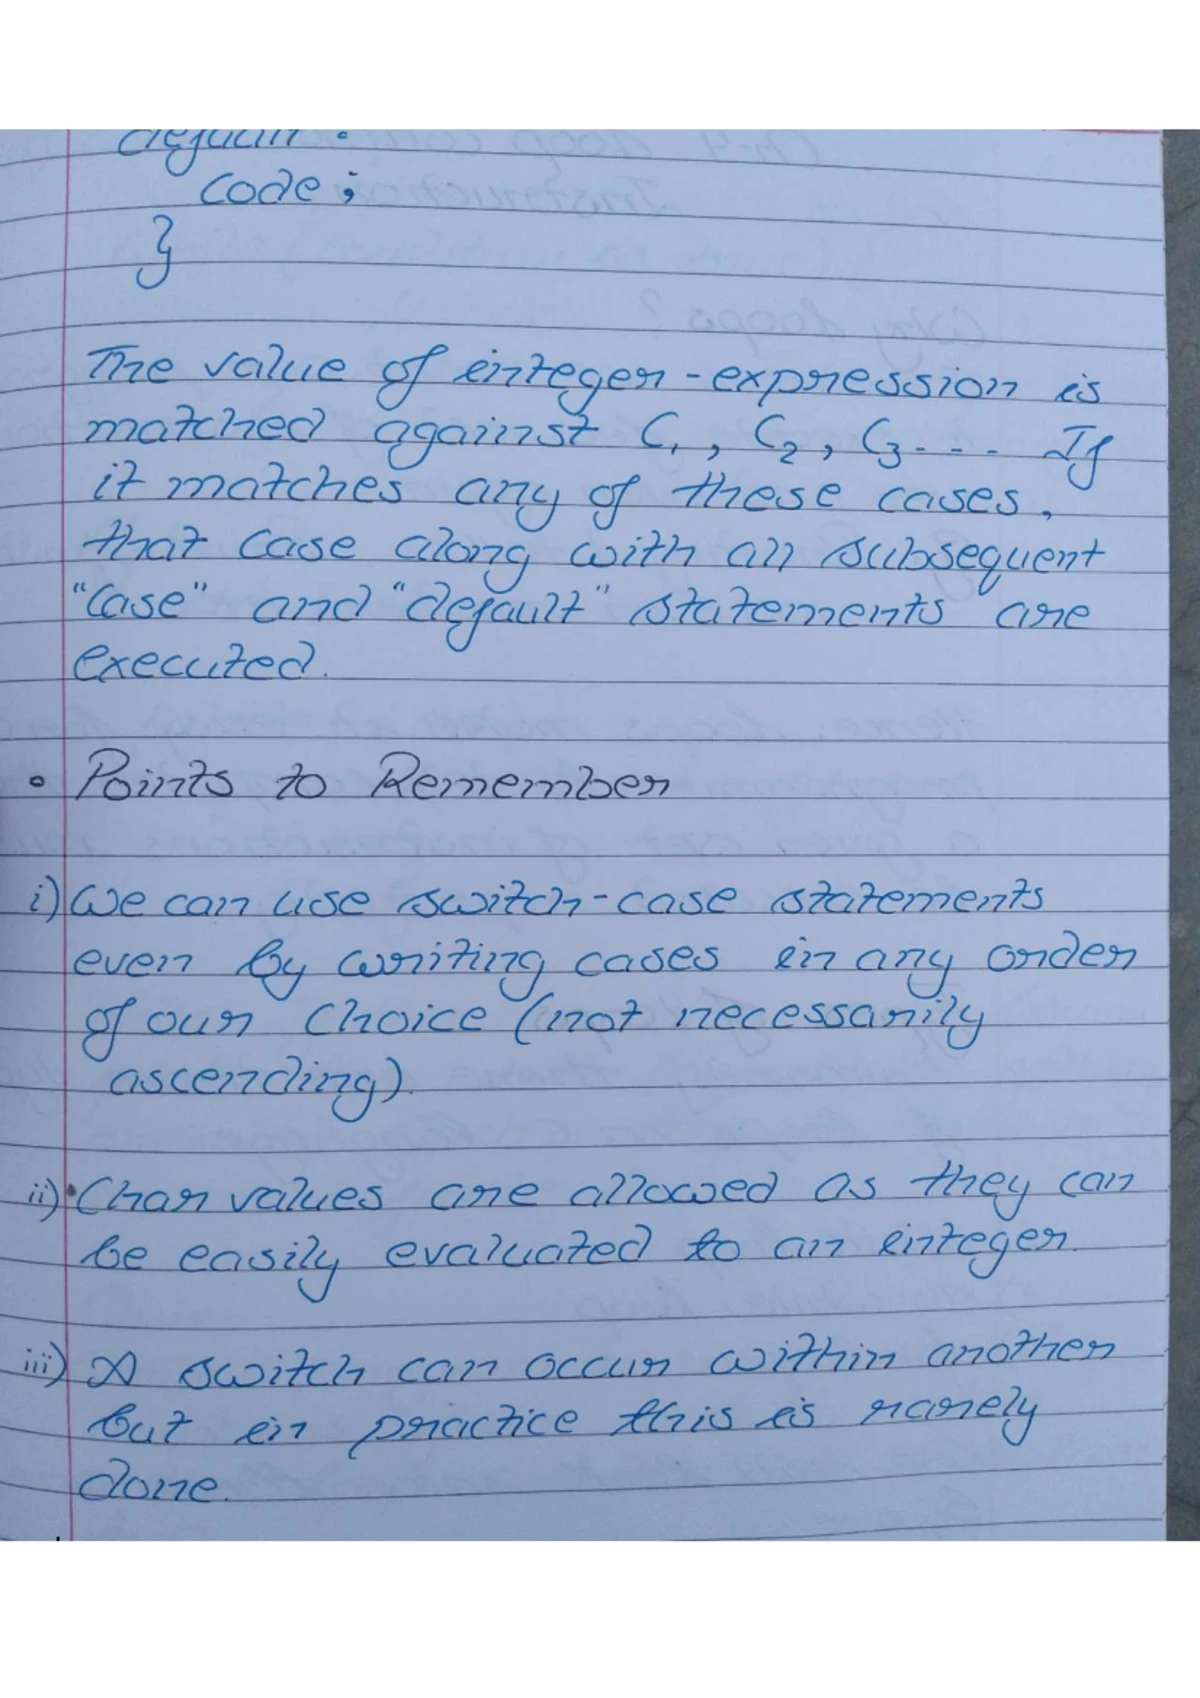 default :
code ;
}
The value of integer-expression is
matched against C1, C2, C3... If
it matches any of these cases,
that case along with all subsequent
"case" and "default" statements are
executed.
• Points to Remember
i) We can use switch-case statements
even by writing cases in any order
of our choice (not necessarily
ascending).
ii) Char values are allowed as they can
be easily evaluated to an integer.
iii) A switch can occur within another
but in practice this is rarely
done.